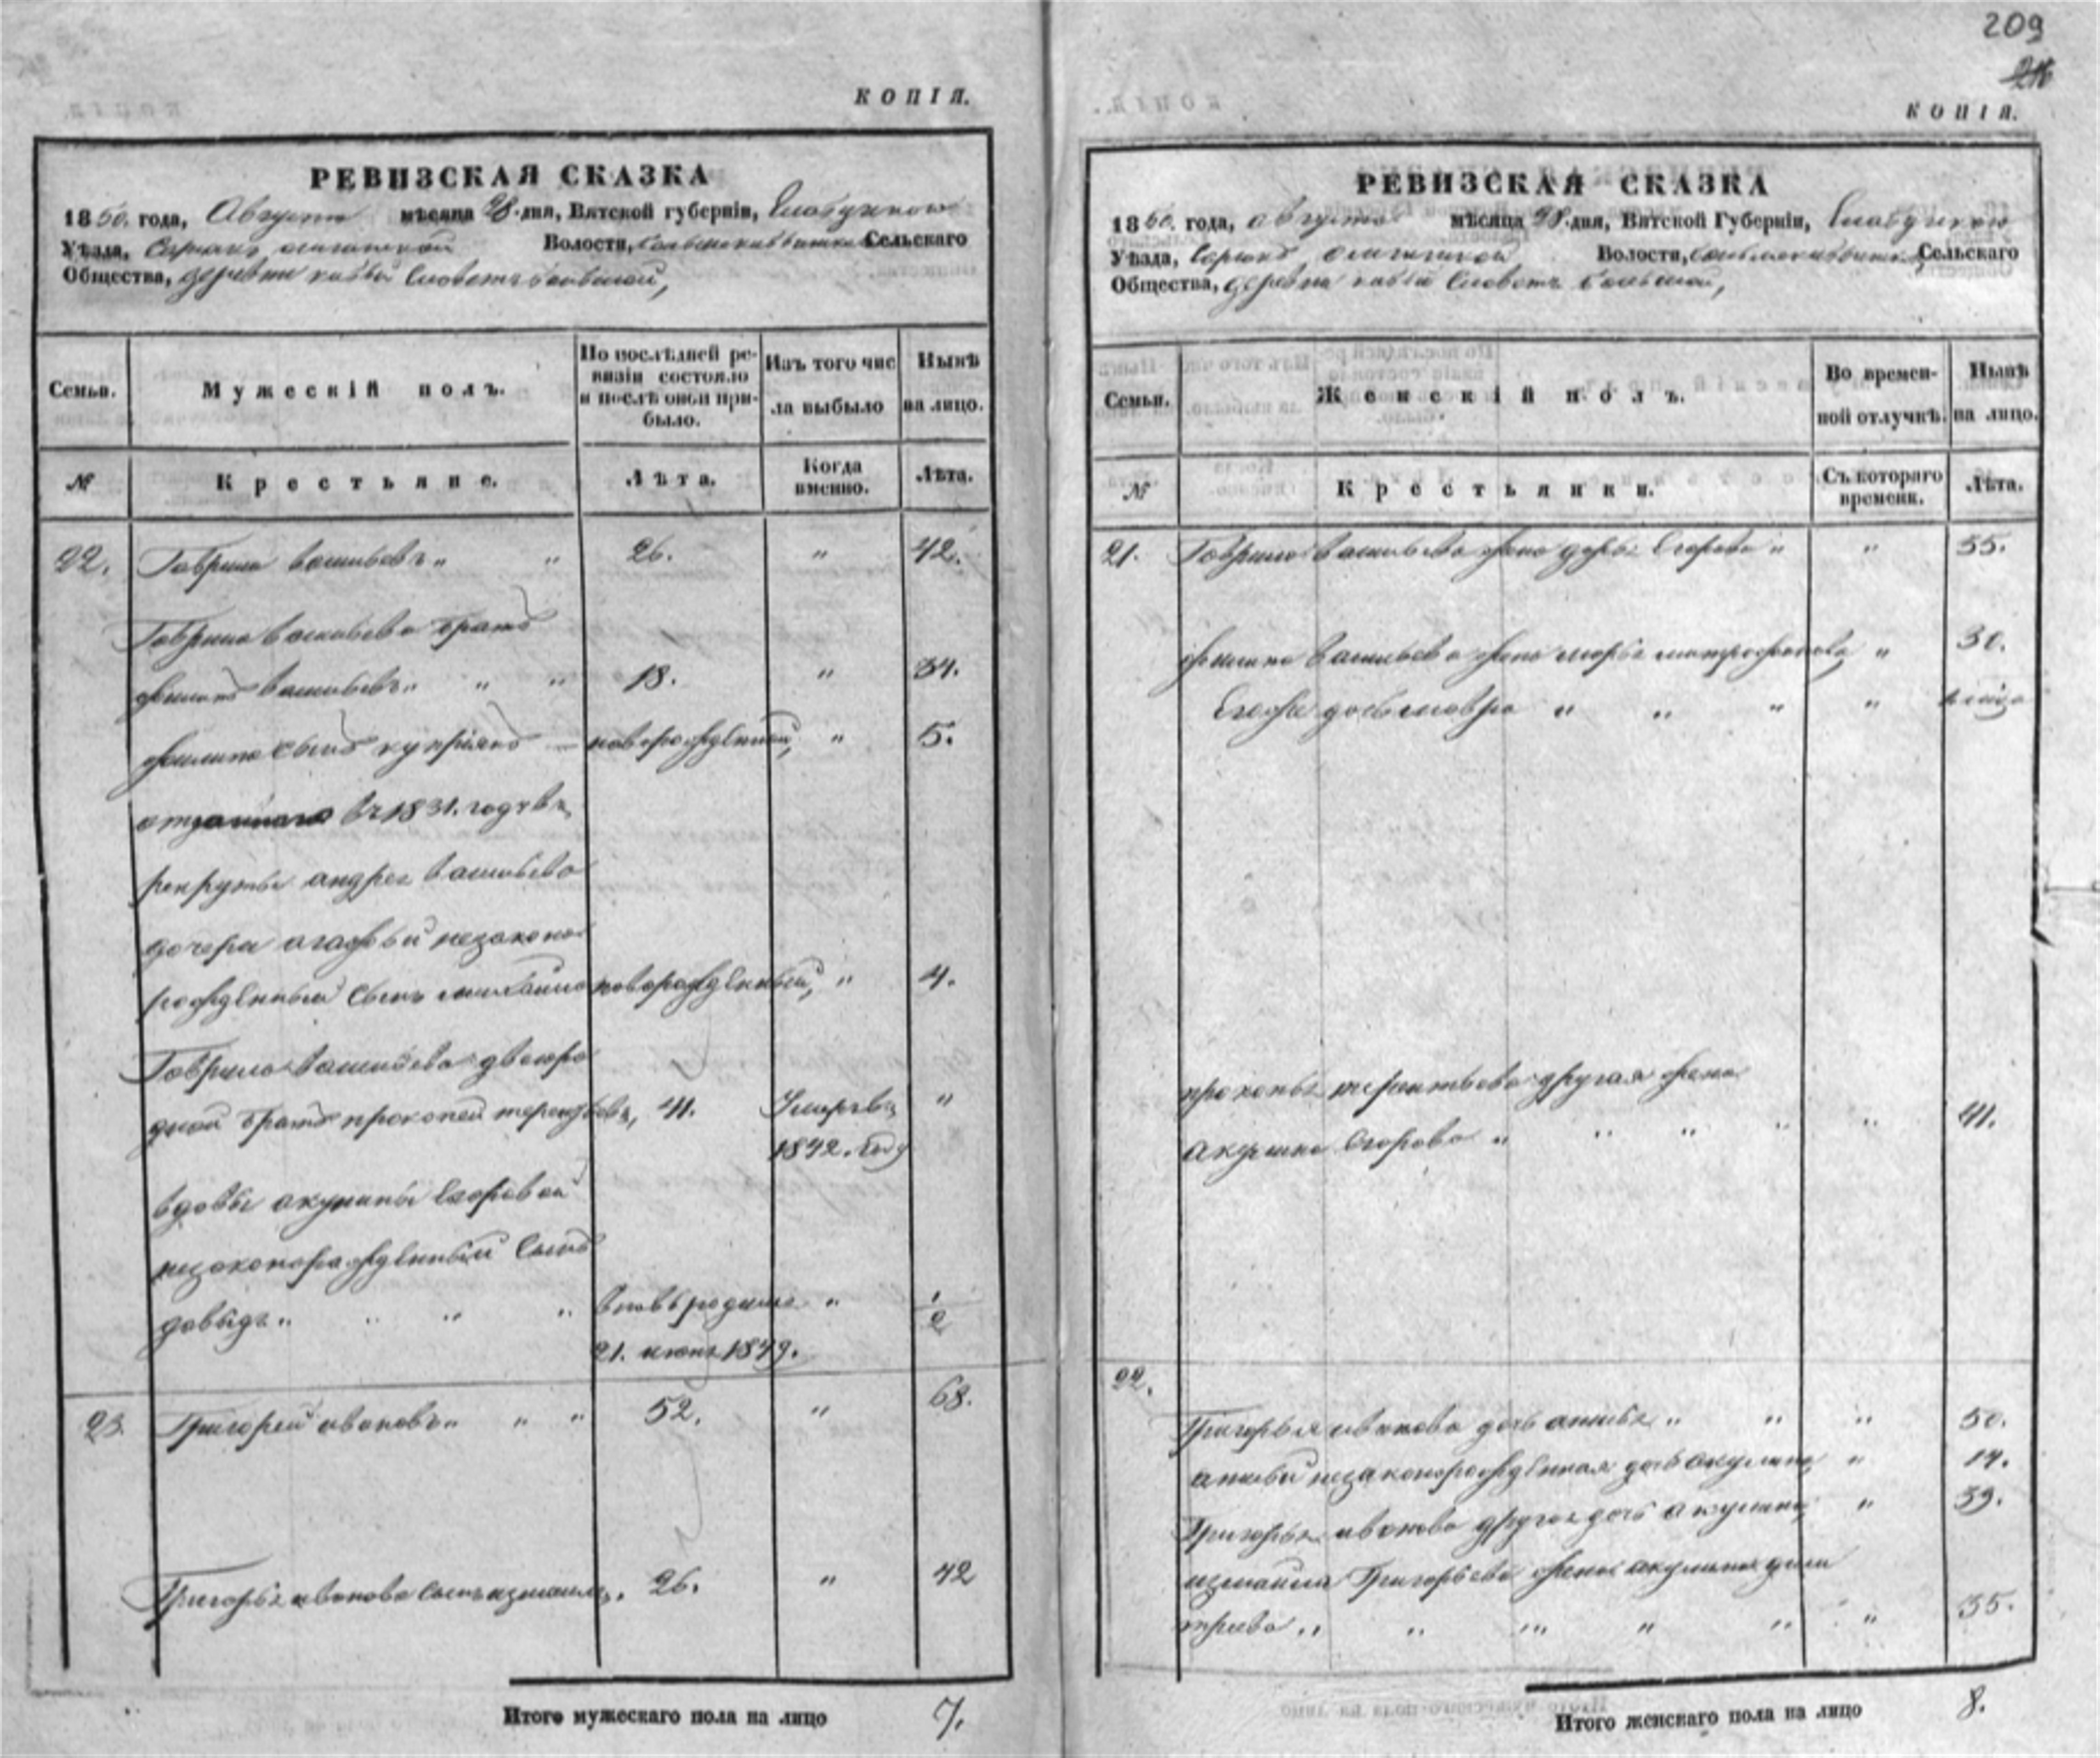 209
КОПІЯ.
РЕВИЗСКАЯ СКАЗКА
1850. года, Августа мѣсяца 28. дня, Вятской губерніи, Елабужскаго
Уѣзда, Волости, Сельскаго
Общества, деревни
Семьи.
Мужескій полъ.
По послѣдней ре-
визіи состояло
и послѣ оной при-
было.
Изъ того чис
ла выбыло
Нынѣ
на лицо.
№
Крестьяне.
Лѣта.
Когда
именно.
Лѣта.
22. Гаврило Васильевъ " " 26. " 42.
Гаврила Васильева братъ
Филипъ Васильевъ " " " 18. " 34.
Филипа сынъ купріянъ новорожденный, " 5.
отданнаго въ 1831. году въ
рекруты андрея Васильева
дочери агафьи незаконно
рожденный сынъ михайло новорожденный, " 4.
Гаврила Васильева двоюро
дной братъ прокопей терентьевъ, 41. Умеръ въ "
1842. году
вдовы акулины Егоровой
незаконорожденный сынъ
давыдъ " " " " вновь родился " 1/2
21. июня 1849.
23. Григорей ивановъ " " " 52. " 68.
Григорья иванова сынъ измаилъ. 26. " 42
Итого мужескаго пола на лицо 7.
КОПІЯ.
РЕВИЗСКАЯ СКАЗКА
1850. года, августа мѣсяца 28. дня, Вятской Губерніи, Елабужскаго
Уѣзда, Волости, Сельскаго
Общества, деревни
Семьи.
Женскій полъ.
Во времен-
ной отлучкѣ.
Нынѣ
на лицо.
№
Крестьянки.
Съ котораго
времени.
Лѣта.
21. Гаврила Васильева жена дарья Егорова " " 55.
Филипа Васильева жена марья митрофанова " 30.
Егоже дочь мавра " " " "
прокопья терентьева другая жена
акулина Егорова " " " " " 41.
22.
Григорья иванова дочь анисья " " " 50.
анисьи незаконорожденная дочь акулина " 14.
Григорья иванова другая дочь акулина " 39.
измаила Григорьева жена акулина дми
трева " " " " " " 35.
Итого женскаго пола на лицо 8.